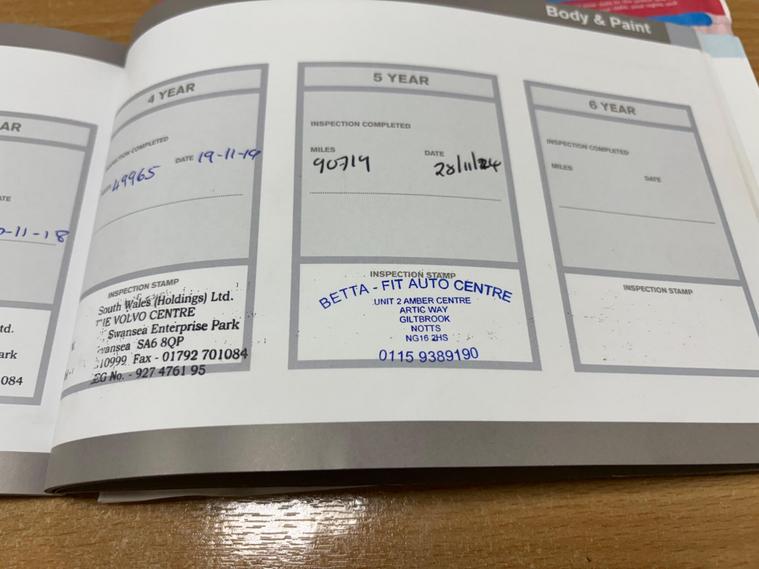 Body & Paint
AR
-11-18
td.
ark
084
4 YEAR
INSPECTION COMPLETED
49965
DATE 19-11-19
INSPECTION STAMP
South Wales (Holdings) Ltd.
THE VOLVO CENTRE
Swansea Enterprise Park
Swansea SA6 8QP
10999 Fax - 01792 701084
REG No. - 927 4761 95
5 YEAR
INSPECTION COMPLETED
MILES
90719
DATE
28/11/24
INSPECTION STAMP
BETTA - FIT AUTO CENTRE
UNIT 2 AMBER CENTRE
ARTIC WAY
GILTBROOK
NOTTS
NG16 2HS
0115 9389190
6 YEAR
INSPECTION COMPLETED
MILES
DATE
INSPECTION STAMP